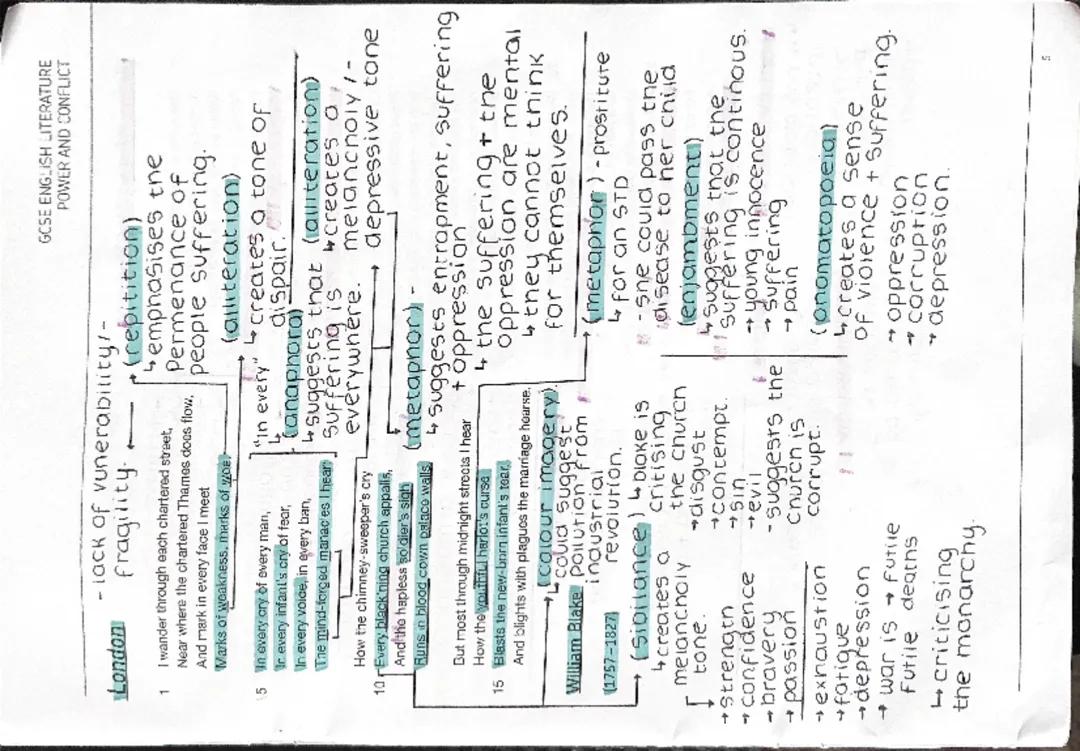 GCSE ENGLISH LITERATURE
POWER AND CONFLICT
London
- lack of vunerability/-
fragility.
1 I wander through each chartered street,
Near where the chartered Thames does flow,
And mark in every face I meet
Marks of weakness, marks of woe.
(repitition)
↳ emphasises the
permenance of
people suffering.
(alliteration)
↳ creates a tone of
despair.
5 In every cry of every man,
In every infant's cry of fear,
In every voice, in every ban,
The mind-forged manacles I hear
"in every"
(anaphora)
↳ suggests that
suffering is
everywhere.
(alliteration)
↳ creates a
melancholy/-
depressive tone
How the chimney-sweeper's cry
10 Every black'ning church appalls,
And the hapless soldier's sigh
Runs in blood down palace walls.
(metaphor) -
↳ suggests entrapment, suffering
+ oppression
↳ the suffering + the
oppression are mental
↳ they cannot think
for themselves.
But most through midnight streets I hear
How the youthful harlot's curse
15 Blasts the new-born infant's tear,
And blights with plagues the marriage hearse.
(metaphor) - prostitute
↳ for an STD
- she could pass the
disease to her child
William Blake
(1757–1827)
(colour imagery)
↳ could suggest
pollution from
industrial
revolution.
(enjambment)
↳ suggests that the
suffering is continous.
→ young innocence
→ suffering
→ pain
(sibilance)
↳ creates a
melancholy
tone.
↳ bloke is
critising
the church
→ disgust
→ contempt.
→ sin
→ evil
- suggests the
church is
corrupt.
(onomatopoeia)
↳ creates a sense
of violence + suffering.
→ oppression
→ corruption
→ depression.
→ strength
→ confidence
→ bravery
→ passion
→ exhaustion
→ fatigue
→ depression
→ war is → futile
futile deaths
↳ criticising
the monarchy.
5